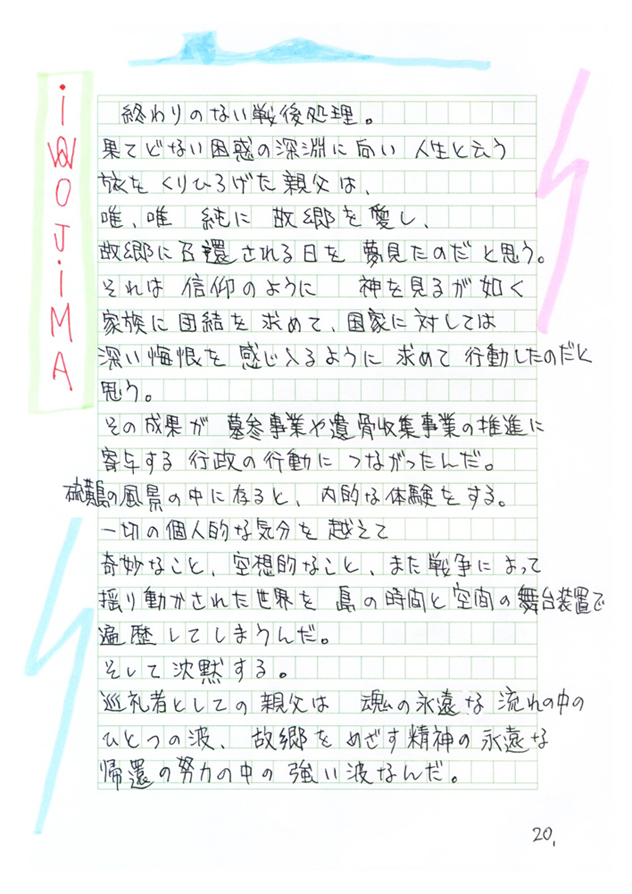 iWOJiMA
終わりのない戦後処理。
果てどない困惑の深淵に向い 人生と云う
旅を くりひろげた親父は、
唯、唯 純に 故郷を愛し、
故郷に召還される日を 夢見たのだ と思う。
それは 信仰のように 神を見るが如く
家族に団結を 求めて、国家に対しては
深い悔恨を 感じ入るように 求めて 行動したのだと
思う。
その成果が 墓参事業や遺骨収集事業の推進に
寄与する 行政の行動に つながったんだ。
硫黄島の風景の中に存ると、内的な体験をする。
一切の個人的な気分を 越えて
奇妙なこと、空想的なこと、また戦争によって
揺り動かされた世界を 島の時間と空間の舞台装置で
遍歴してしまうんだ。
そして沈黙する。
巡礼者としての親父は 魂の永遠な 流れの中の
ひとつの波、故郷を めざす精神の永遠な
帰還の努力の中の 強い波なんだ。
20.